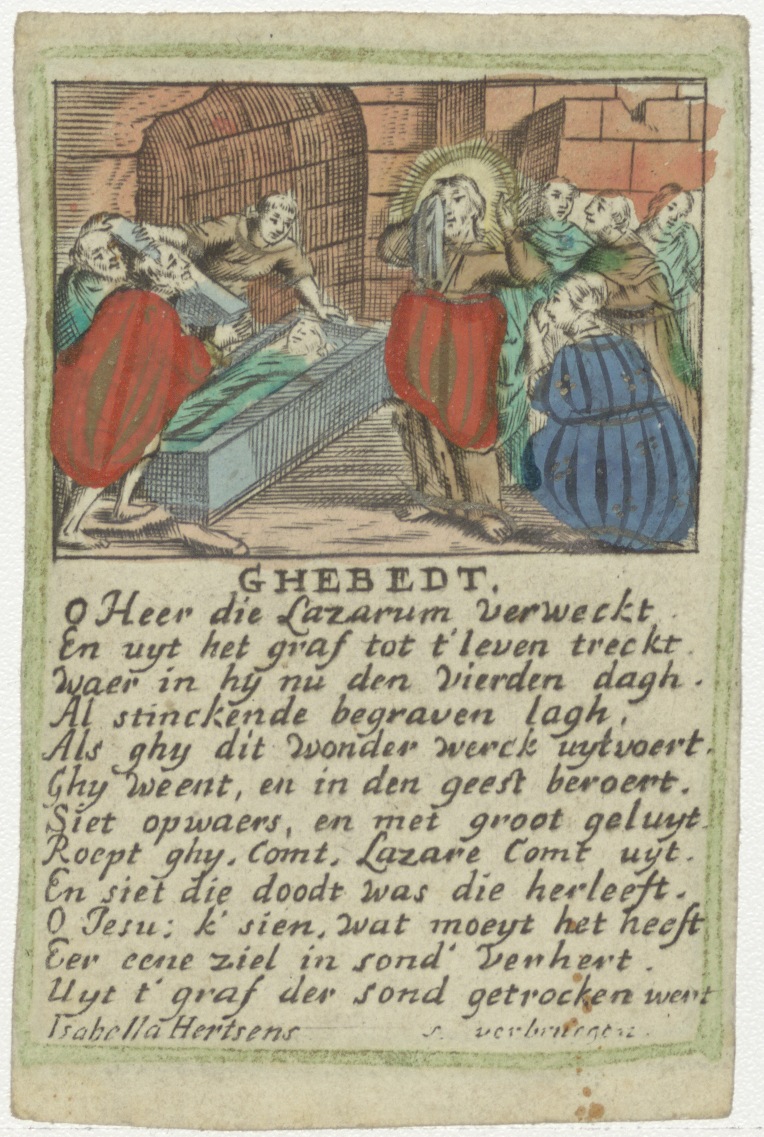 GHEBEDT.
O Heer die Lazarum verweckt.
En uyt het graf tot t'leven treckt.
Waer in hy nu den vierden dagh.
Al stinckende begraven lagh.
Als ghy dit wonder werck uytvoert.
Ghy weent, en in den geest beroert.
Siet opwaers, en met groot geluyt.
Roept ghy, Comt, Lazare Comt uyt.
En siet die doodt was die herleeft.
O Jesu; k' sien, wat moeyt het heeft
Eer eene ziel in sond' verhert.
Uyt t' graf der sond getrocken wert
Isabella Hertsens s. verbruegen.